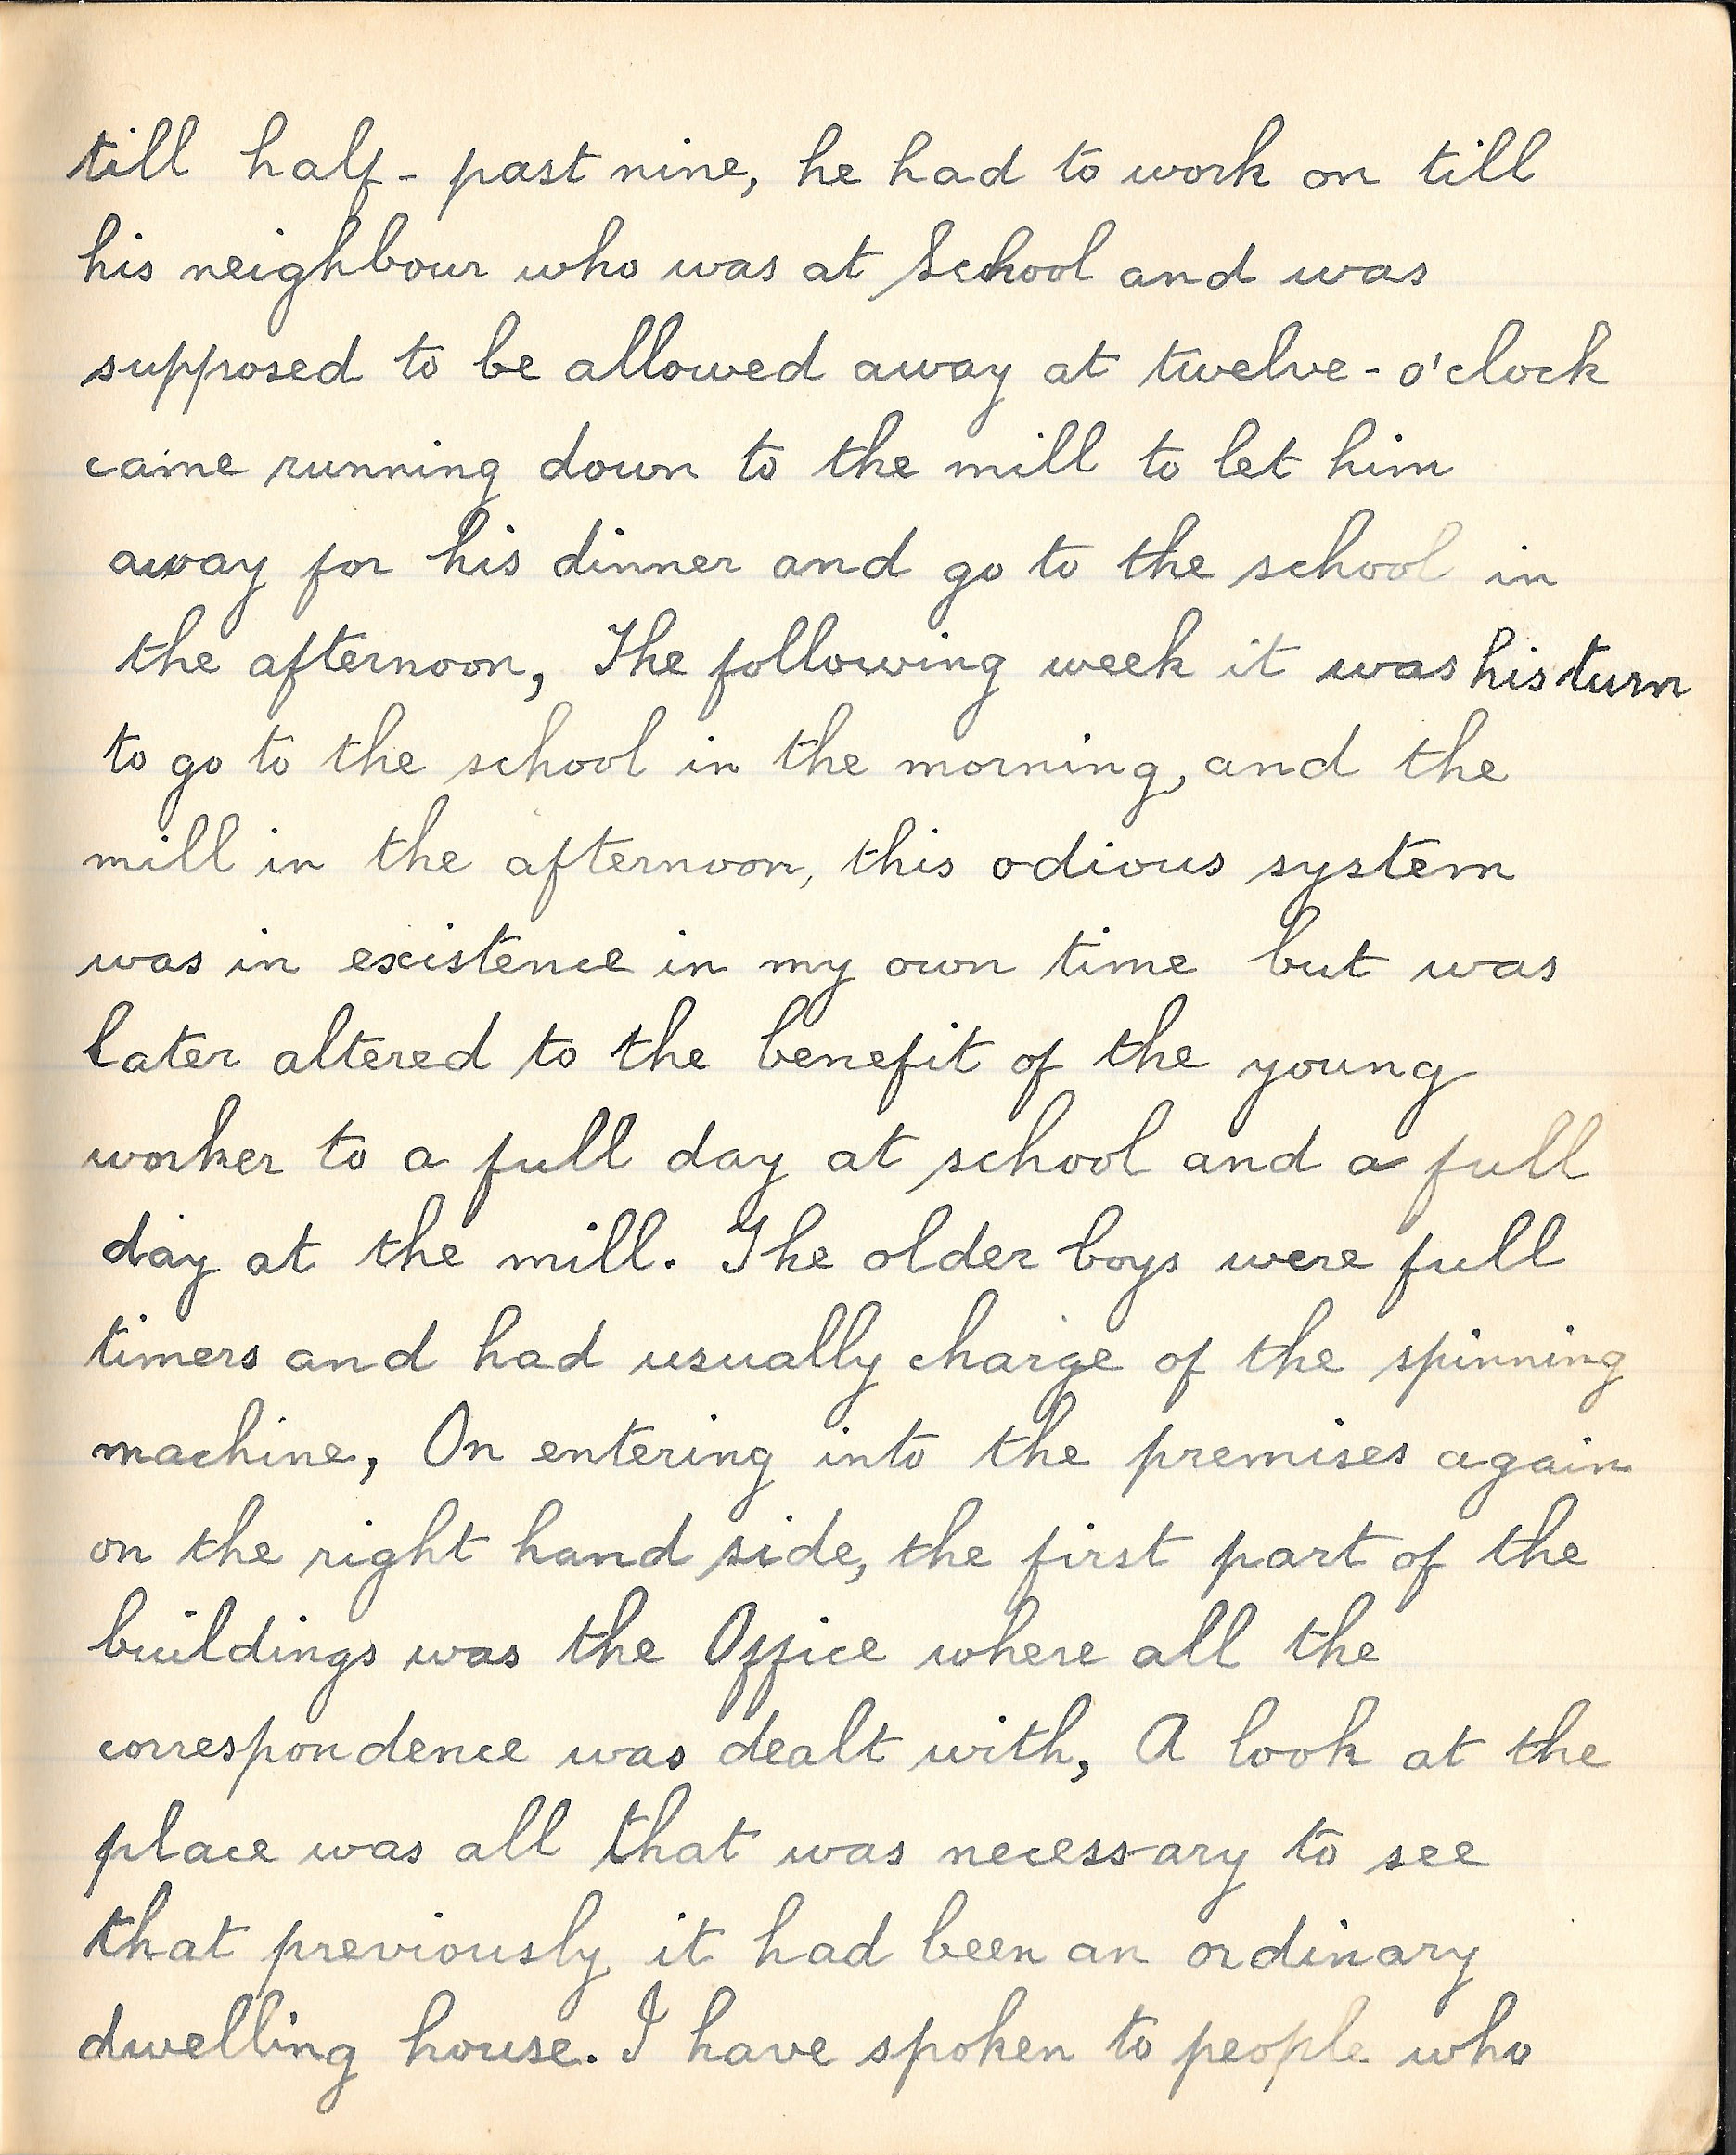 till half - past nine, he had to work on till
his neighbour who was at School and was
supposed to be allowed away at twelve - o'clock
came running down to the mill to let him
away for his dinner and go to the school in
the afternoon, The following week it was his turn
to go to the school in the morning, and the
mill in the afternoon, this odious system
was in existence in my own time but was
later altered to the benefit of the young
worker to a full day at school and a full
day at the mill. The older boys were full
timers and had usually charge of the spinning
machine, On entering into the premises again
on the right hand side, the first part of the
buildings was the Office where all the
correspondence was dealt with, A look at the
place was all that was necessary to see
that previously it had been an ordinary
dwelling house. I have spoken to people who